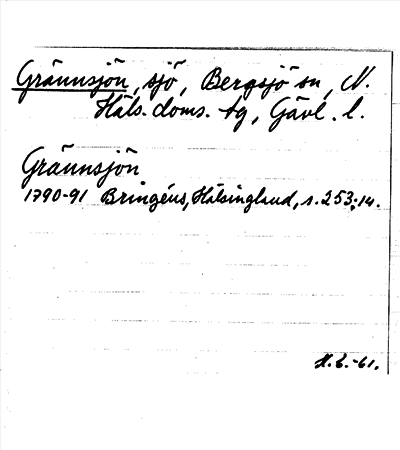 Grännsjön, sjö, Bergsjö sn, N.
Häls. doms. tg, Gävl. l.
Grännsjön
1790-91 Bringéus, Hälsingland, s. 253; 14.
H.E. -61.